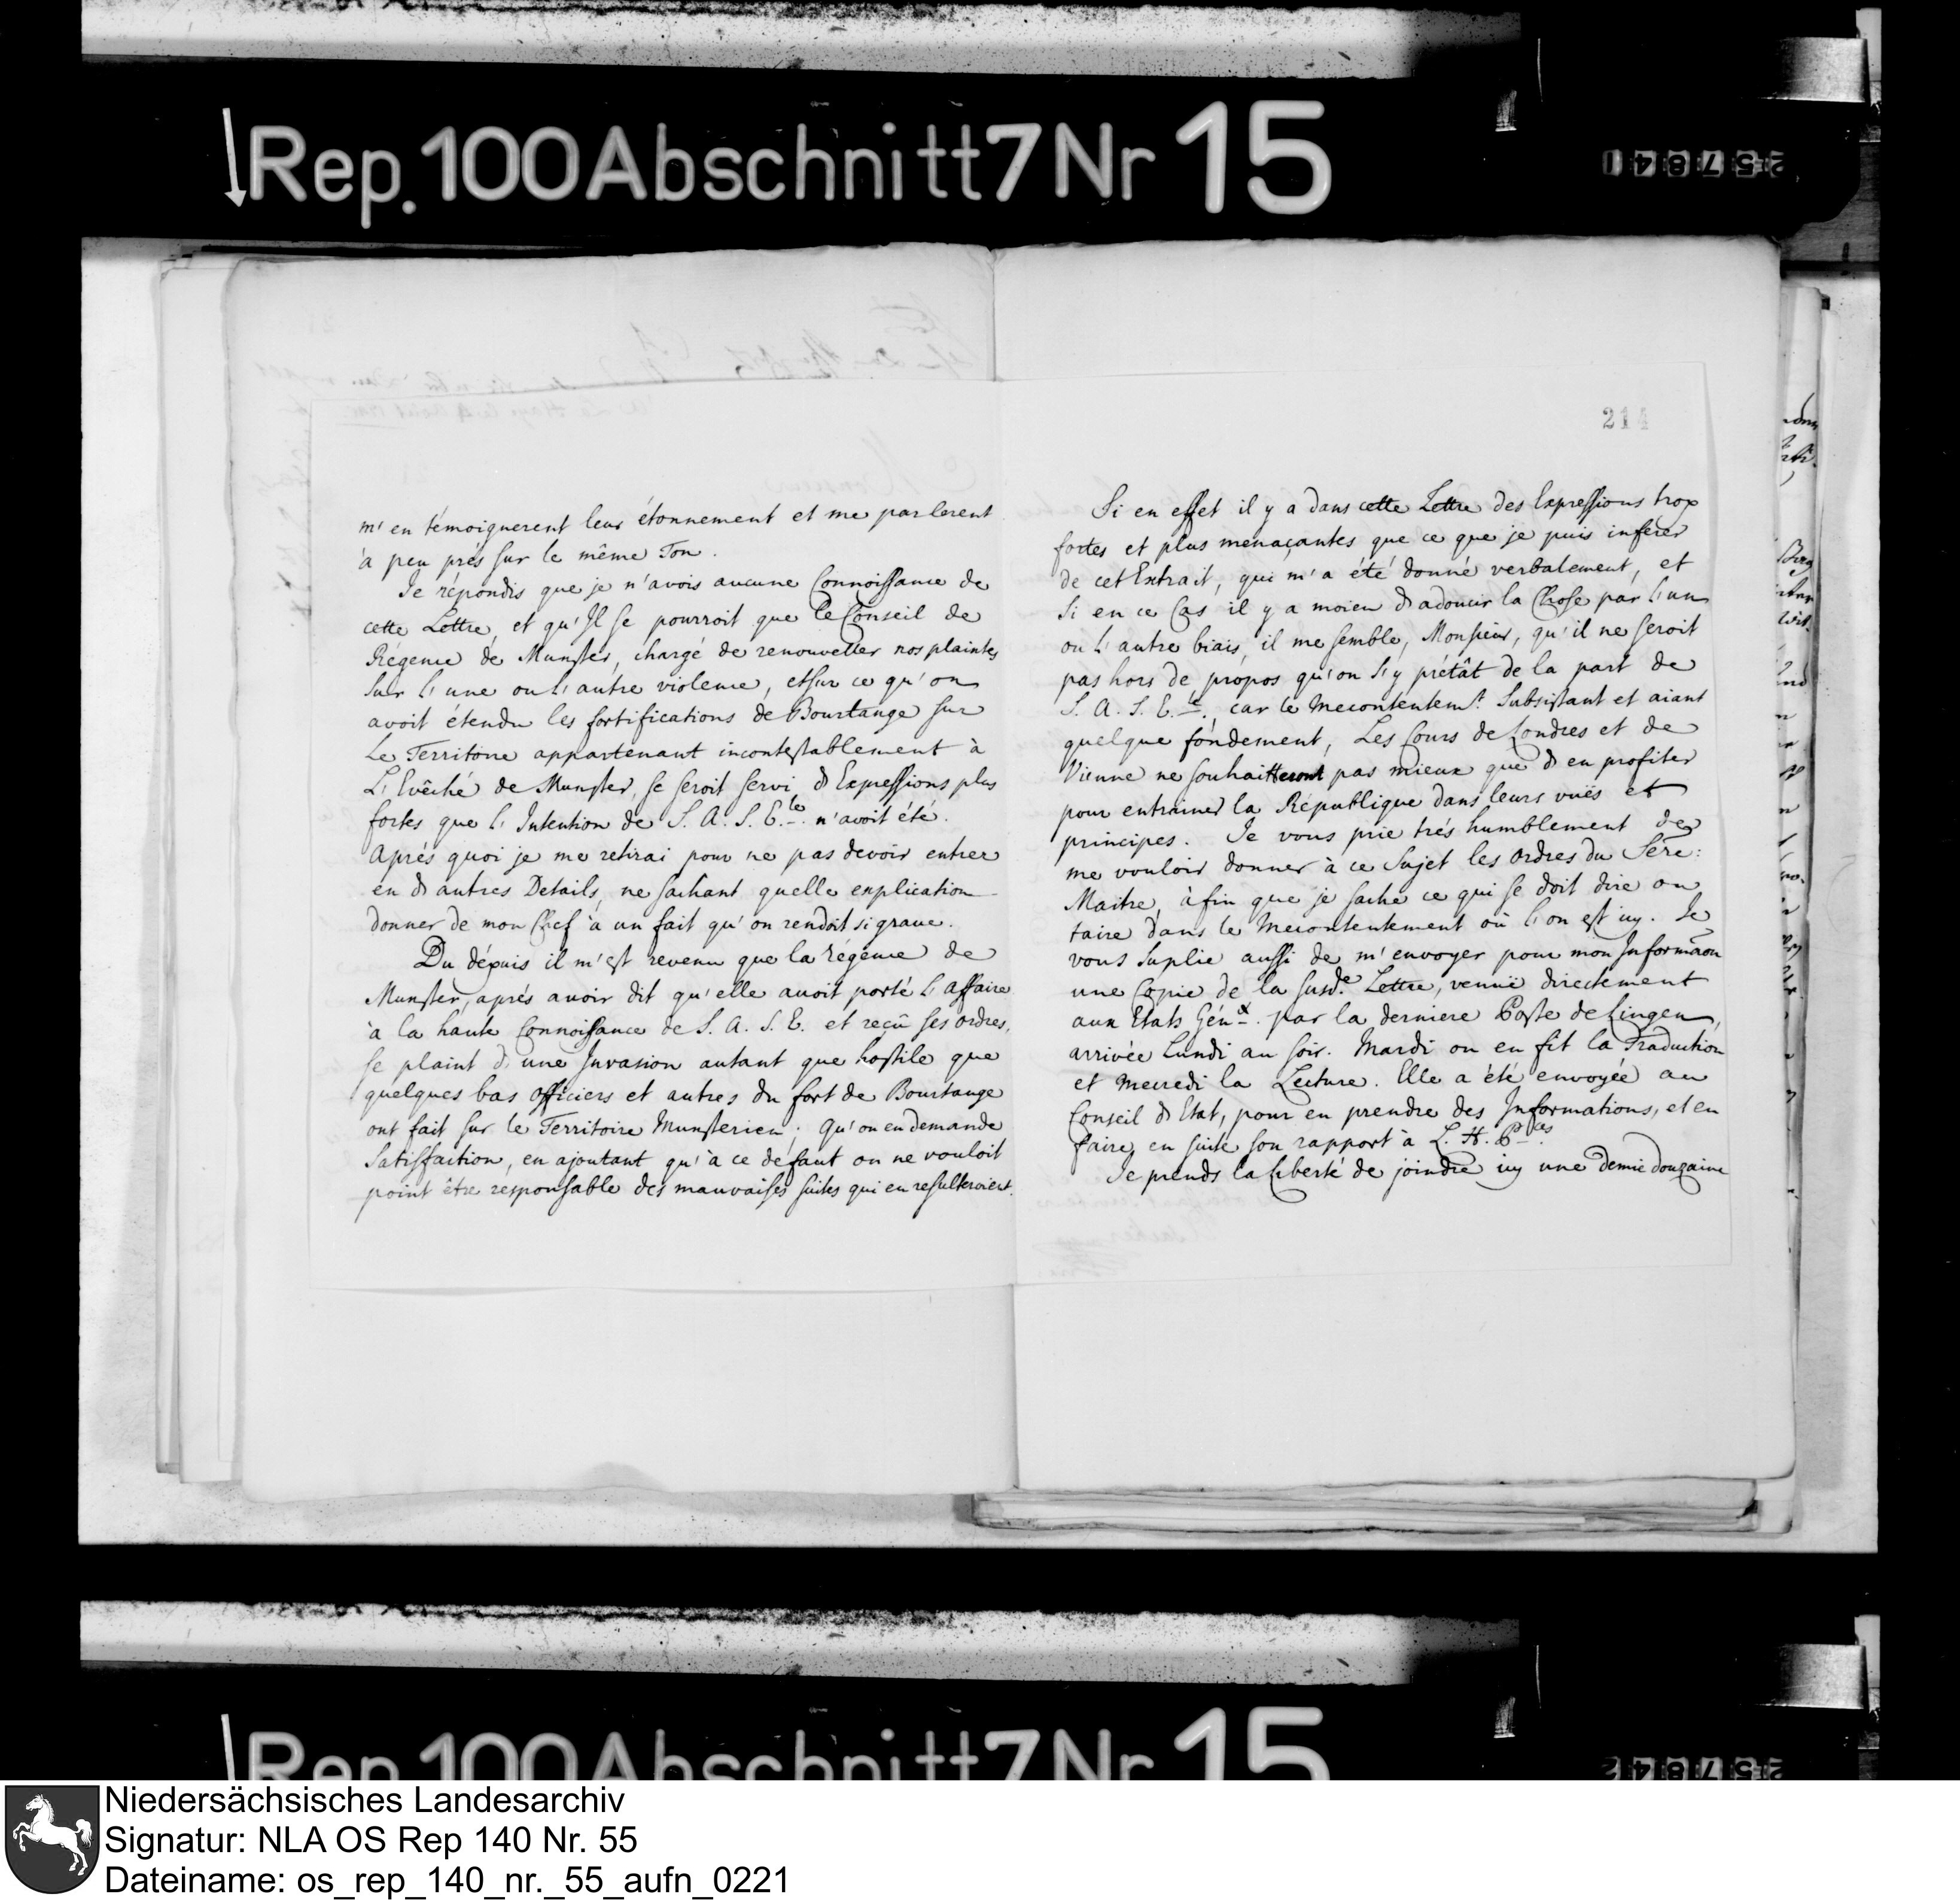 Rep. 100 Abschnitt 7 Nr 15
25784 1
m'en témoignerent leur étonnement et me parlerent
à peu prés sur le même Ton.
Je répondis que je n'avois aucune Connoissance de
cette Lettre, et qu'Il se pourroit que le Conseil de
Régence de Munster, chargé de renouveller nos plaintes
sur l'une ou l'autre violence, et sur ce qu'on
avoit étendu les fortifications de Bourtange sur
Le Territoire appartenant incontestablement à
L'Evêché de Munster, se seroit servi d'Expressions plus
fortes que l'Intention de S. A. S. E.le n'avoit été.
Aprés quoi je me retirai pour ne pas devoir entrer
en d'autres Details, ne sachant quelle explication
donner de mon Chef à un fait qu'on rendoit si grave.
Du dépuis il m'est revenu que la régence de
Munster, aprés avoir dit qu'elle avoit porté l'affaire
à la haute Connoissance de S. A. S. E. et reçû ses ordres,
se plaint d'une Invasion autant que hostile que
quelques bas officiers et autres du fort de Bourtange
ont fait sur le Territoire Munsterien; qu'on en demande
Satisfaction, en ajoutant qu'à ce défaut on ne vouloit
point être responsable des mauvaises suites qui en resulteroient.
214
Si en effet il y a dans cette Lettre des Expressions trop
fortes et plus menaçantes que ce que je puis inférer
de cet Extrait, qui m'a été donné verbalement, et
si en ce Cas il y a moien d'adoucir la Chose par l'un
ou l'autre biais, il me semble, Monsieur, qu'il ne seroit
pas hors de propos qu'on s'y prétât de la part de
S. A. S. E.le, car le Mecontentemt. Subsistant et aiant
quelque fondement, Les Cours de Londres et de
Vienne ne souhaitteront pas mieux que d'en profiter
pour entrainer la République dans leurs vuës et
principes. Je vous prie trés humblement de
me vouloir donner à ce Sujet les ordres du Sére:
Maitre, àfin que je sache ce qui se doit dire ou
taire dans le Mecontentement où l'on est icy. Je
vous Suplie aussi de m'envoyer pour mon Informaon
une Copie de la susd.e Lettre, venuë directement
aux Etats Gén.x par la derniere Poste de Lingen,
arrivée Lundi au soir. Mardi on en fit la Traduction
et Mecredi la Lecture. Elle a été envoyée au
Conseil d'Etat, pour en prendre des Informations, et en
faire en suite son rapport à L. H. P.ces
Je prends la liberté de joindre icy une demie douzaine
Rep. 100 Abschnitt 7 Nr 15
25784 2
Niedersächsisches Landesarchiv
Signatur: NLA OS Rep 140 Nr. 55
Dateiname: os_rep_140_nr._55_aufn_0221